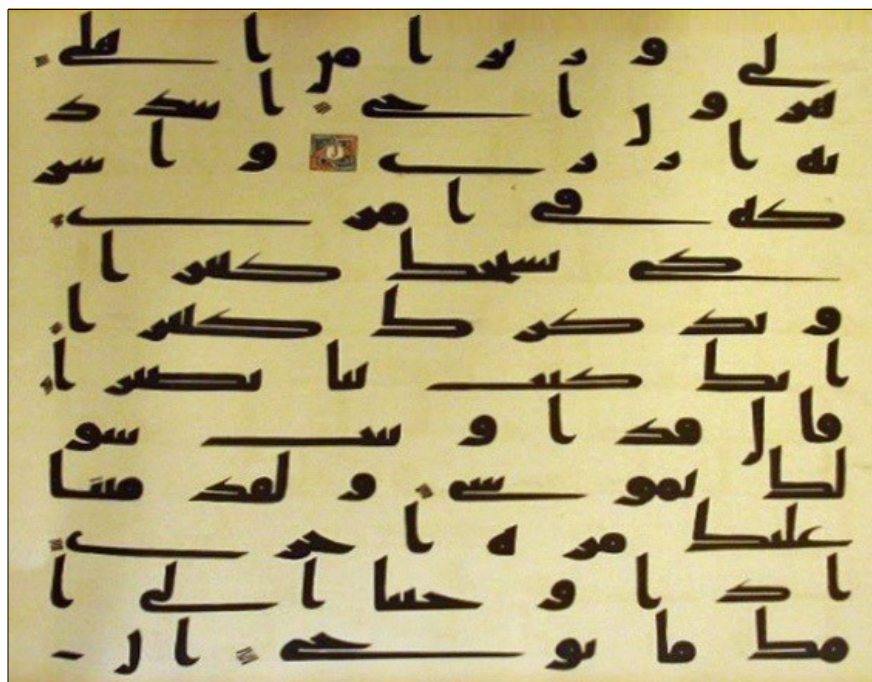 لي وزيرا من اهلي
هرون اخي اشدد
به ازري واشر
كه في امري
كي نسبحك كثيرا
ونذكرك كثيرا
انك كنت بنا بصيرا
قال قد اوتيت سو
لك يموسى ولقد مننا
عليك مرة اخرى
اذ اوحينا الى ا
مك ما يوحى ان